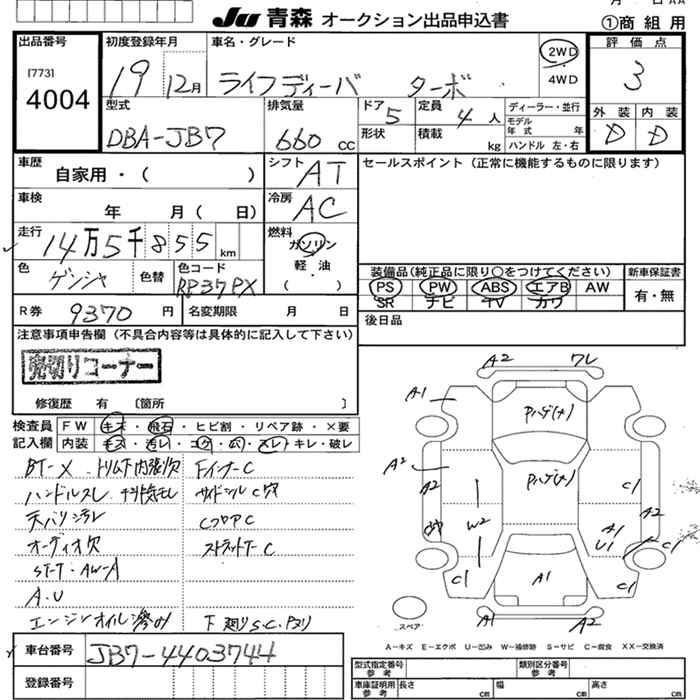 Ju 青森 オークション出品申込書
①商 組 用
出品番号
[773]
4004
初度登録年月
19 12月
車名・グレード
ライフディーバ ターボ
2WD
4WD
評 価 点
3
型式
DBA-JB7
排気量
660 cc
ドア 5
定員 4 人
形状
積載 kg
ディーラー・並行
モデル
年 式 年
ハンドル 左・右
外 装
内 装
D
D
車歴
自家用・( )
シフト AT
セールスポイント(正常に機能するものに限ります)
車検
年 月( 日)
冷房 AC
走行
14万5千855 km
燃料
ガソリン
軽・油
( )
色
ゲンシャ
色替
色コード
RP37PX
装備品(純正品に限り○をつけてください)
新車保証書
PS PW ABS エアB AW
SR ナビ TV カワ
有・無
R券 9370 円
名変期限 月 日
後日品
注意事項申告欄(不具合内容等は具体的に記入して下さい)
売切りコーナー
修復歴 有 〔箇所 〕
検査員
記入欄
FW キズ・飛石・ヒビ割・リペア跡・×要
内装 キズ・汚レ・コゲ・穴・スレ・キレ・破レ
BT-X
ハンドルスレ
サイドシル C穴
天バリ汚レ
CフロアC
オーディオ欠
ストラットケーC
ST-T・AW-A
A.U
エンジンオイル滲み
下廻りS.C.
A2
ワレ
A1
Pハゲ(大)
A2
A2
Pハゲ(大)
C1
A2
W2
A1
U1
C1
C1
A1
C1
A1
A2
スペア
A-キズ E-エクボ U-凹み W-補修跡 S-サビ C-腐食 XX-交換済
車台番号
JB7-4403744
登録番号
型式指定番号
参 考
類別区分番号
参 考
車庫証明用
参 考
長さ cm
幅 cm
高さ cm